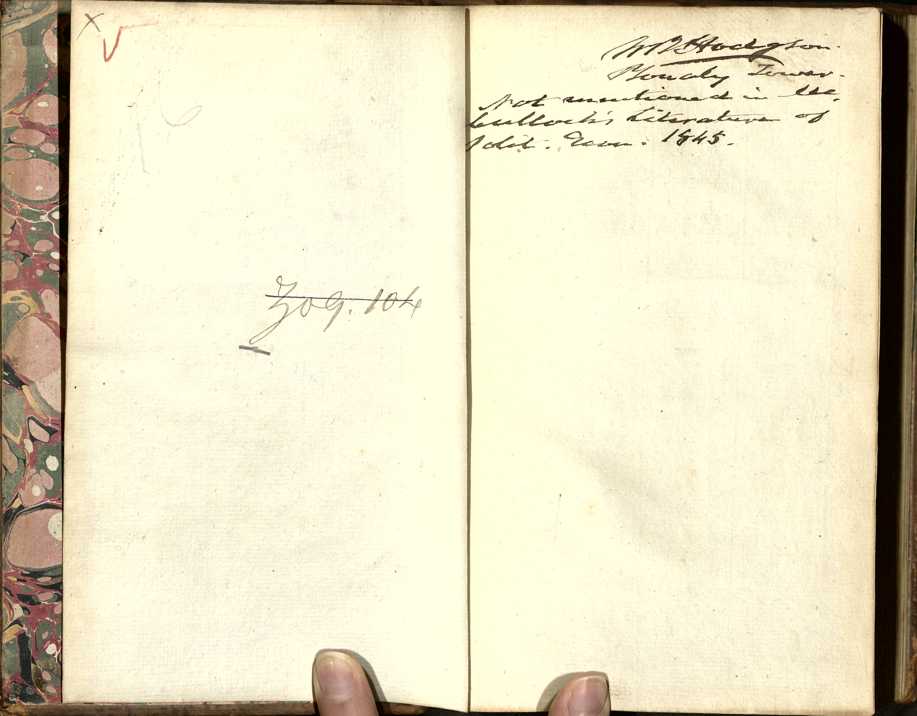 x
Z09. 104
W B Hodgson.
Bonaly Tower.
Not mentioned in Mc.
Culloch's Literature of
Polit. Econ. 1845.